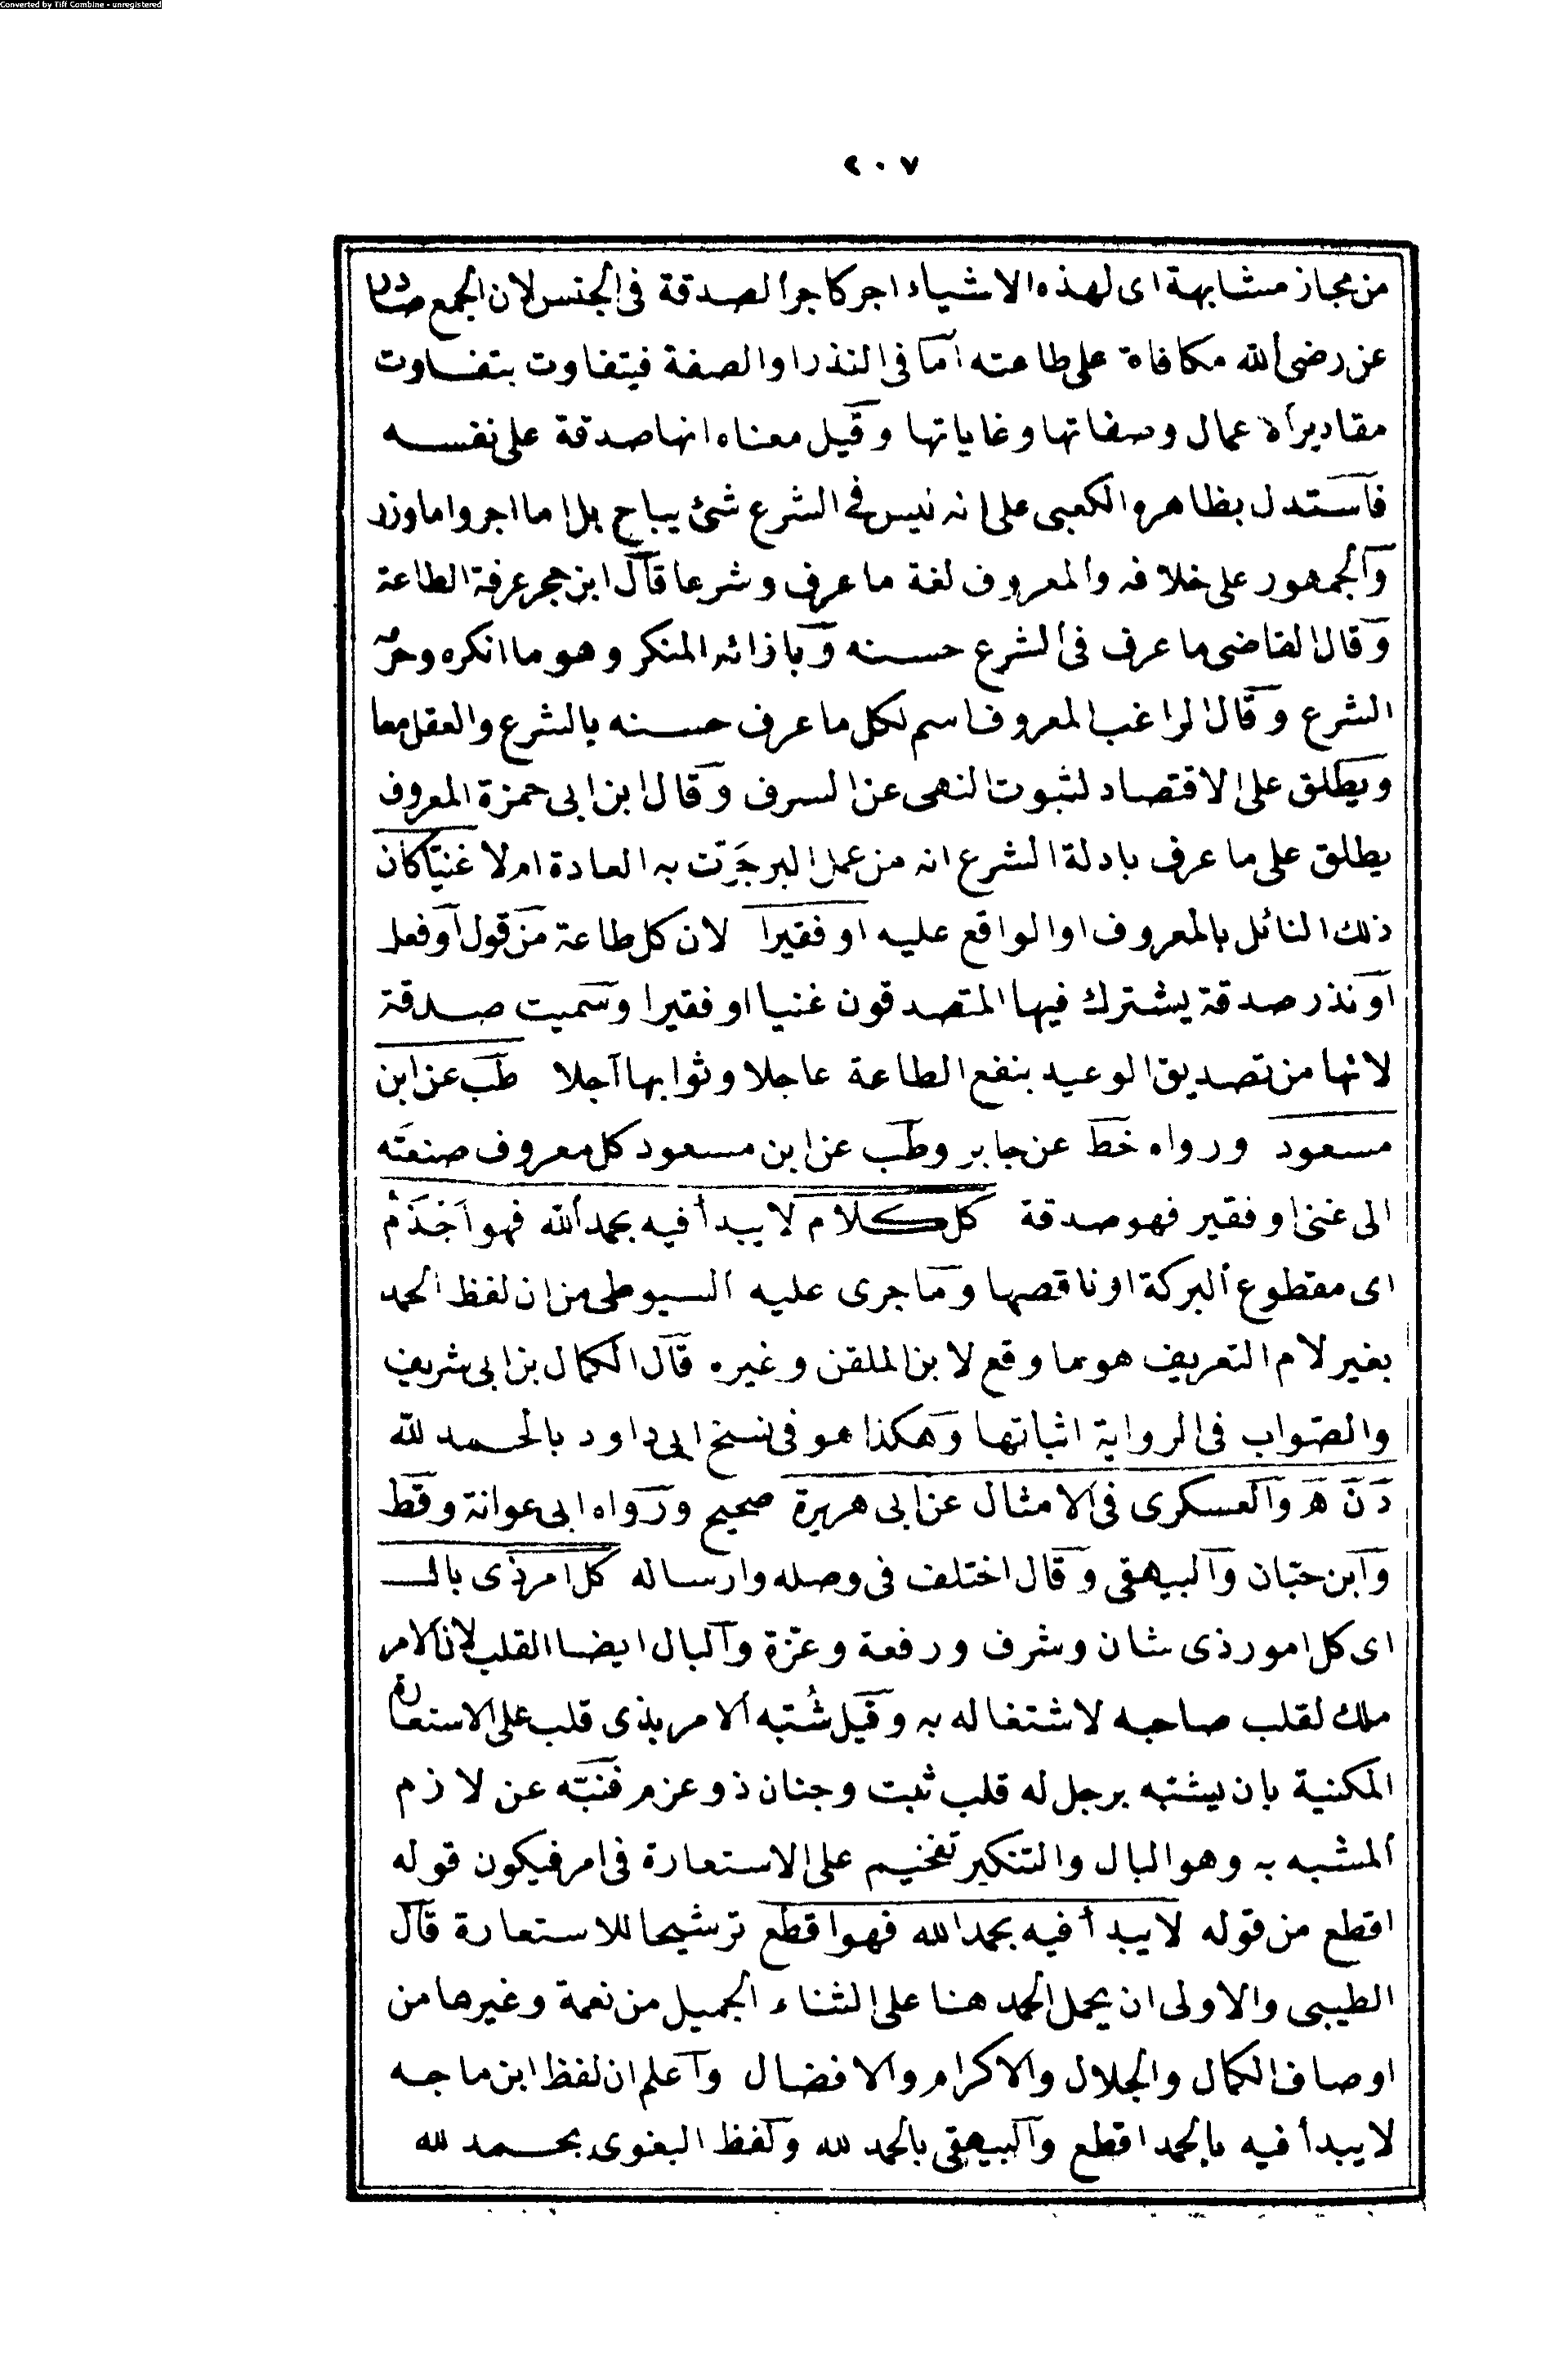 Converted by Tiff Combine - unregistered
٢٠٧
من مجاز مشابهة اى لهذه الاشياء اجر كاجر الصدقة فى الجنس لان الجمع صادر
عن رضى الله مكافاة على طاعته اما فى النذر او الصفة فيتفاوت بتفاوت
مقادير الاعمال وصفاتها وغاياتها وقيل معناه انها صدقة على نفسه
فاستدل بظاهره الكعبى على انه ليس فى الشرع شئ يباح بل اما اجر واما وزر
والجمهور على خلافه والمعروف لغة ما عرف وشرعا قال ابن حجر عرفة الطاعة
وقال القاضى ما عرف فى الشرع حسنه وبازائه المنكر وهو ما انكره وحرمه
الشرع وقال الراغب المعروف اسم لكل ما عرف حسنه بالشرع والعقل معا
ويطلق على الاقتصاد لثبوت النهى عن السرف وقال ابن ابى حمزة المعروف
يطلق على ما عرف بادلة الشرع انه من عمل البر جَرَت به العادة ام لا غنيّا كان
ذلك النائل بالمعروف او الواقع عليه او فقيرا لان كل طاعة من قول او فعل
او نذر صدقة يشترك فيها المتصدقون غنيا او فقيرا وسميت صدقة
لانها من تصديق الوعيد بنفع الطاعة عاجلا وثوابها آجلا طب عن ابن
مسعود ورواه خط عن جابر وطب عن ابن مسعود كل معروف صنعته
الى غنى او فقير فهو صدقة كل كلام لا يبدأ فيه بحمد الله فهو اَجْذَم
اى مقطوع البركة او ناقصها وما جرى عليه السيوطى من ان لفظ الحمد
بغير لام التعريف هو ما وقع لابن الملقن وغيره قال الكمال بن ابى شريف
والصّواب فى الرواية اثباتها وهكذا هو فى نسخ ابى داود بالحمد لله
د ن ه والعسكرى فى الامثال عن ابى هريرة صحيح ورواه ابى عوانة وقط
وابن حبّان والبيهقى وقال اختلف فى وصله وارساله كل امر ذى بال
اى كل امور ذى شان وشرف ورفعة وعزّة والبال ايضا القلب لان الامر
ملك لقلب صاحبه لاشتغاله به وقيل شُبّه الامر بذى قلب على الاستعارة
المكنية بان يشبّه برجل له قلب ثبت وجنان ذو عزم فنبّه عن لازم
المشبه به وهو البال والتنكير تفخيم على الاستعارة فى امر فيكون قوله
اقطع من قوله لا يبدأ فيه بحمد الله فهو اقطع ترشيحا للاستعارة قال
الطيبى والاولى ان يحمل الحمد هنا على الثناء الجميل من نعمة وغيرها من
اوصاف الكمال والجلال والاكرام والافضال واعلم ان لفظ ابن ماجه
لا يبدأ فيه بالحمد اقطع والبيهقى بالحمد لله ولفظ البغوى بحمد لله